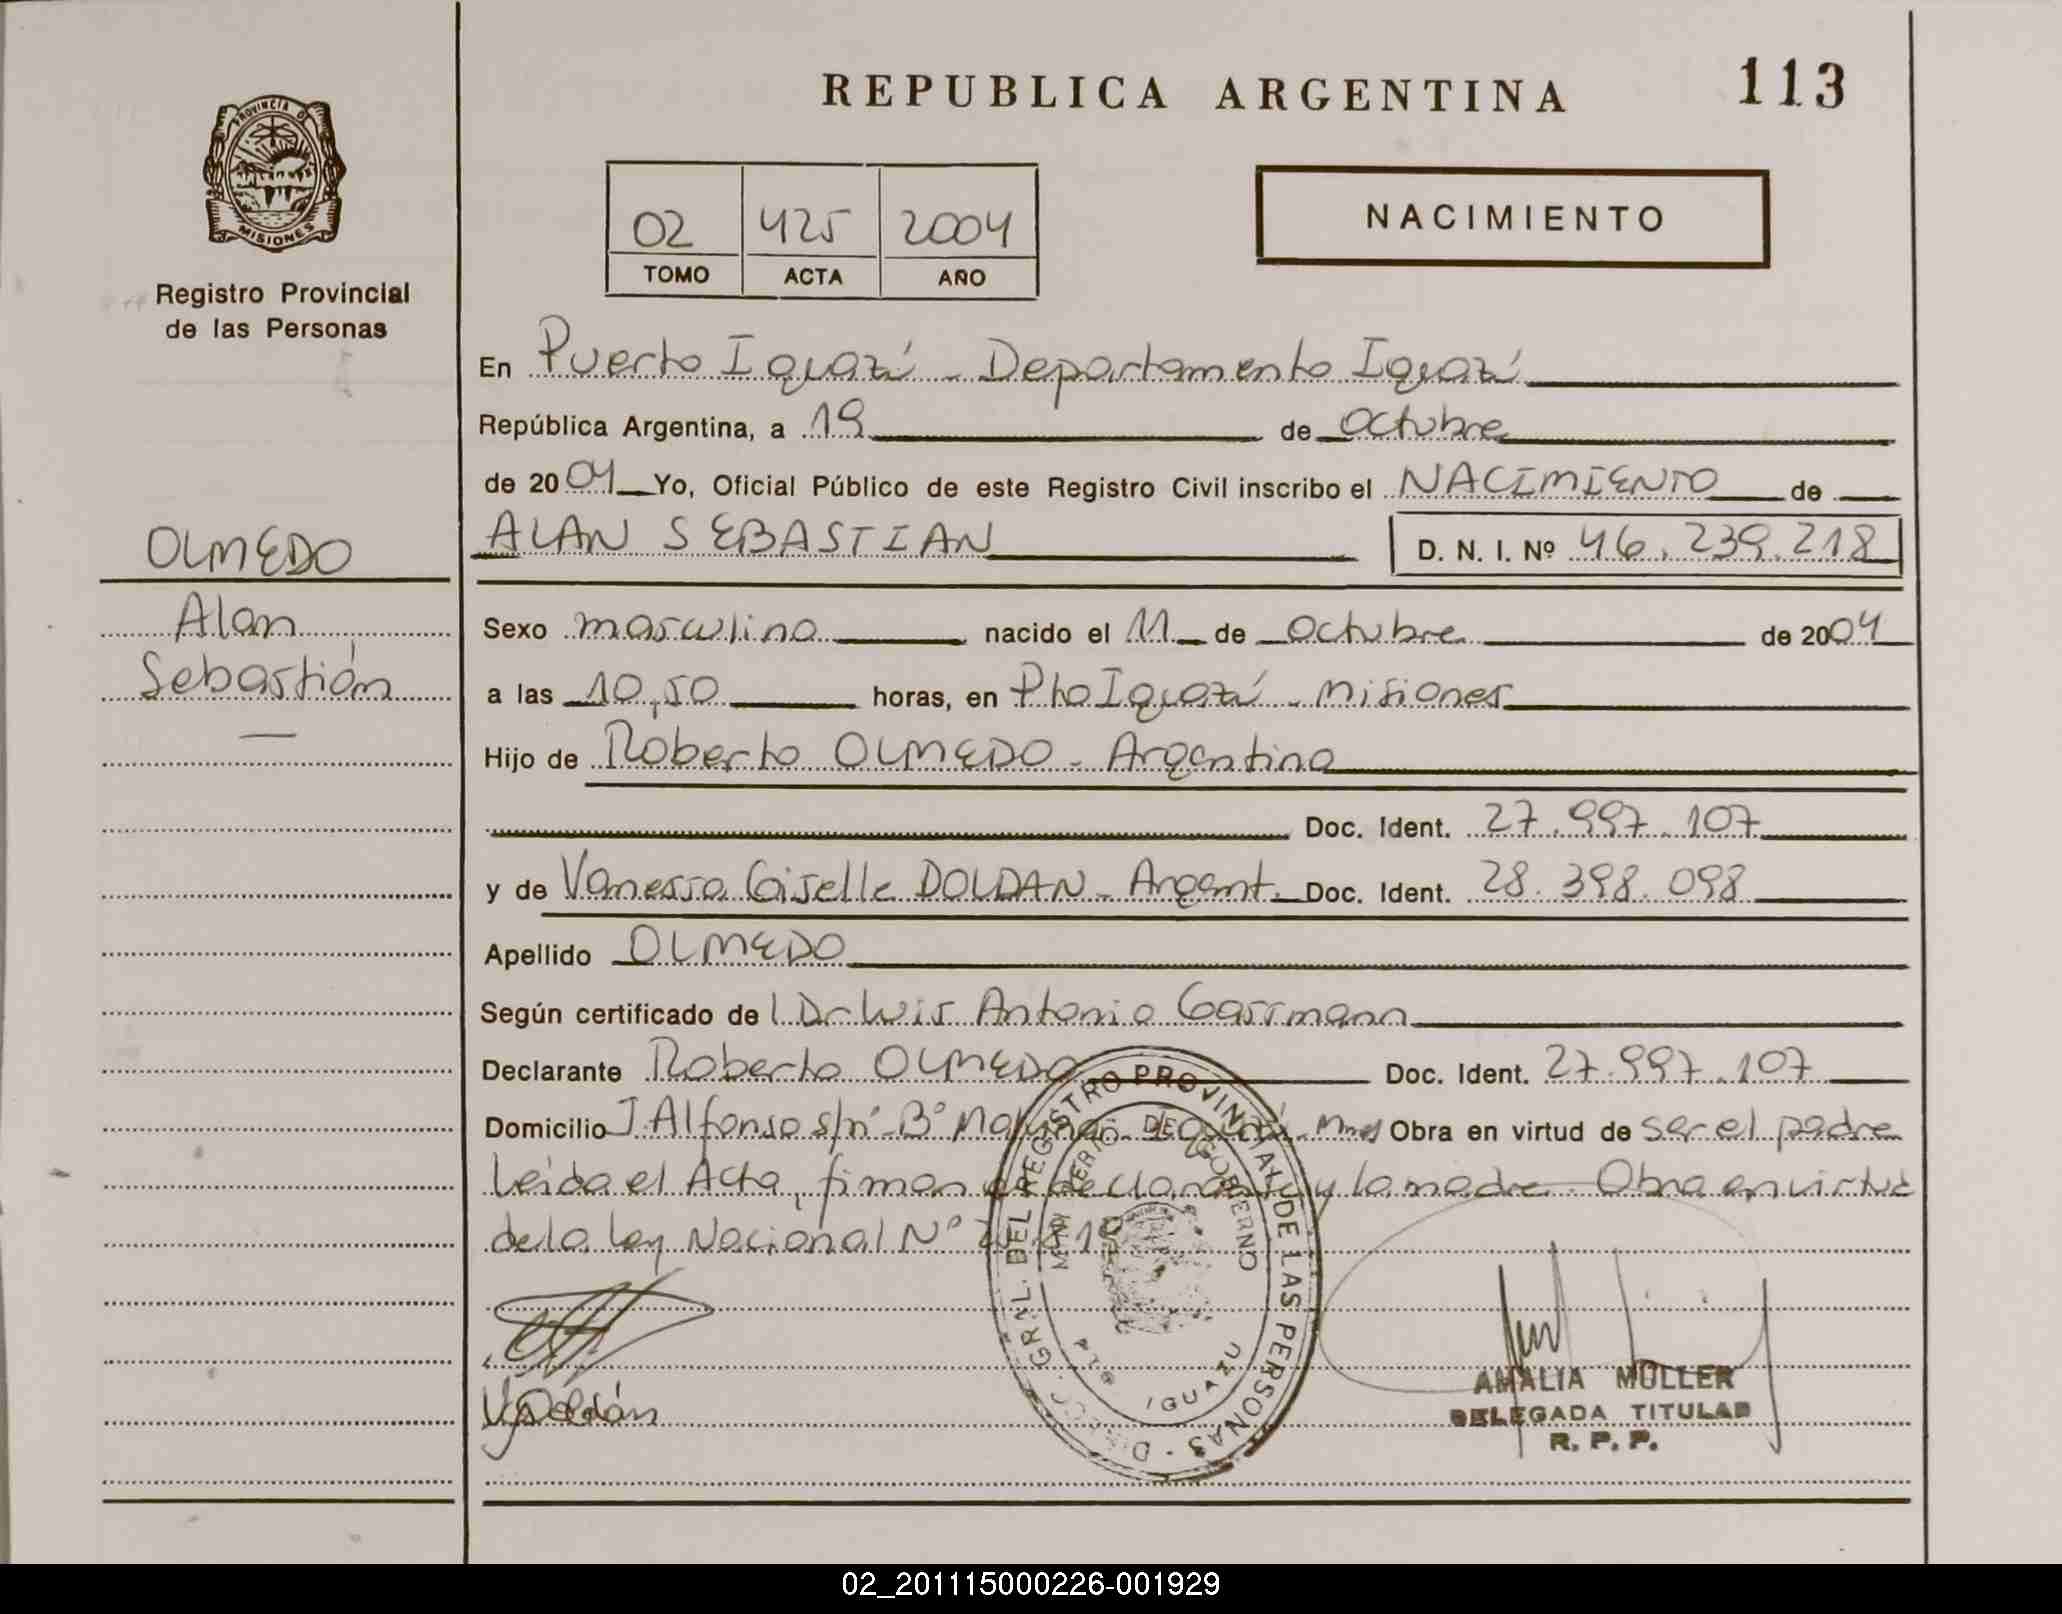 REPUBLICA ARGENTINA
113
PROVINCIA DE
MISIONES
Registro Provincial
de las Personas
02 425 2004
TOMO ACTA AÑO
NACIMIENTO
En Puerto Iguazú - Departamento Iguazú
República Argentina, a 19 de octubre
de 2004 Yo, Oficial Público de este Registro Civil inscribo el NACIMIENTO de
ALAN SEBASTIAN D. N. I. Nº 46.239.218
OLMEDO
Alan
Sebastián
Sexo masculino nacido el 11 de octubre de 2004
a las 10,50 horas, en Pto Iguazú - Misiones
Hijo de Roberto OLMEDO - Argentino
Doc. Ident. 27.997.107
y de Vanessa Giselle DOLDAN - Argent. Doc. Ident. 28.398.098
Apellido OLMEDO
Según certificado de l Dr Luis Antonio Gassmann
Declarante Roberto OLMEDO Doc. Ident. 27.997.107
Domicilio J. Alfonso s/nº - Bº - Mnes Obra en virtud de ser el padre
Leida el Acta, firman el declarante y la madre - Obra en virtud
de la Ley Nacional Nº
DIRECC. GRAL. DEL REGISTRO PROVINCIAL DE LAS PERSONAS
MINISTERIO DE GOBIERNO
IGUAZU
VgDoldán
AMALIA MULLER
DELEGADA TITULAR
R. P. P.
02_201115000226-001929